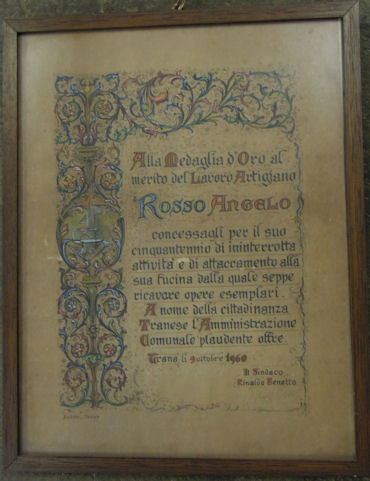 Alla Medaglia d'Oro al
merito del Lavoro Artigiano
Rosso Angelo
concessagli per il suo
cinquantennio di ininterrotta
attività e di attaccamento alla
sua fucina dalla quale seppe
ricavare opere esemplari.
A nome della cittadinanza
Tranese l'Amministrazione
Comunale plaudente offre.
Trani li 9 ottobre 1960
Il Sindaco
Rinaldo